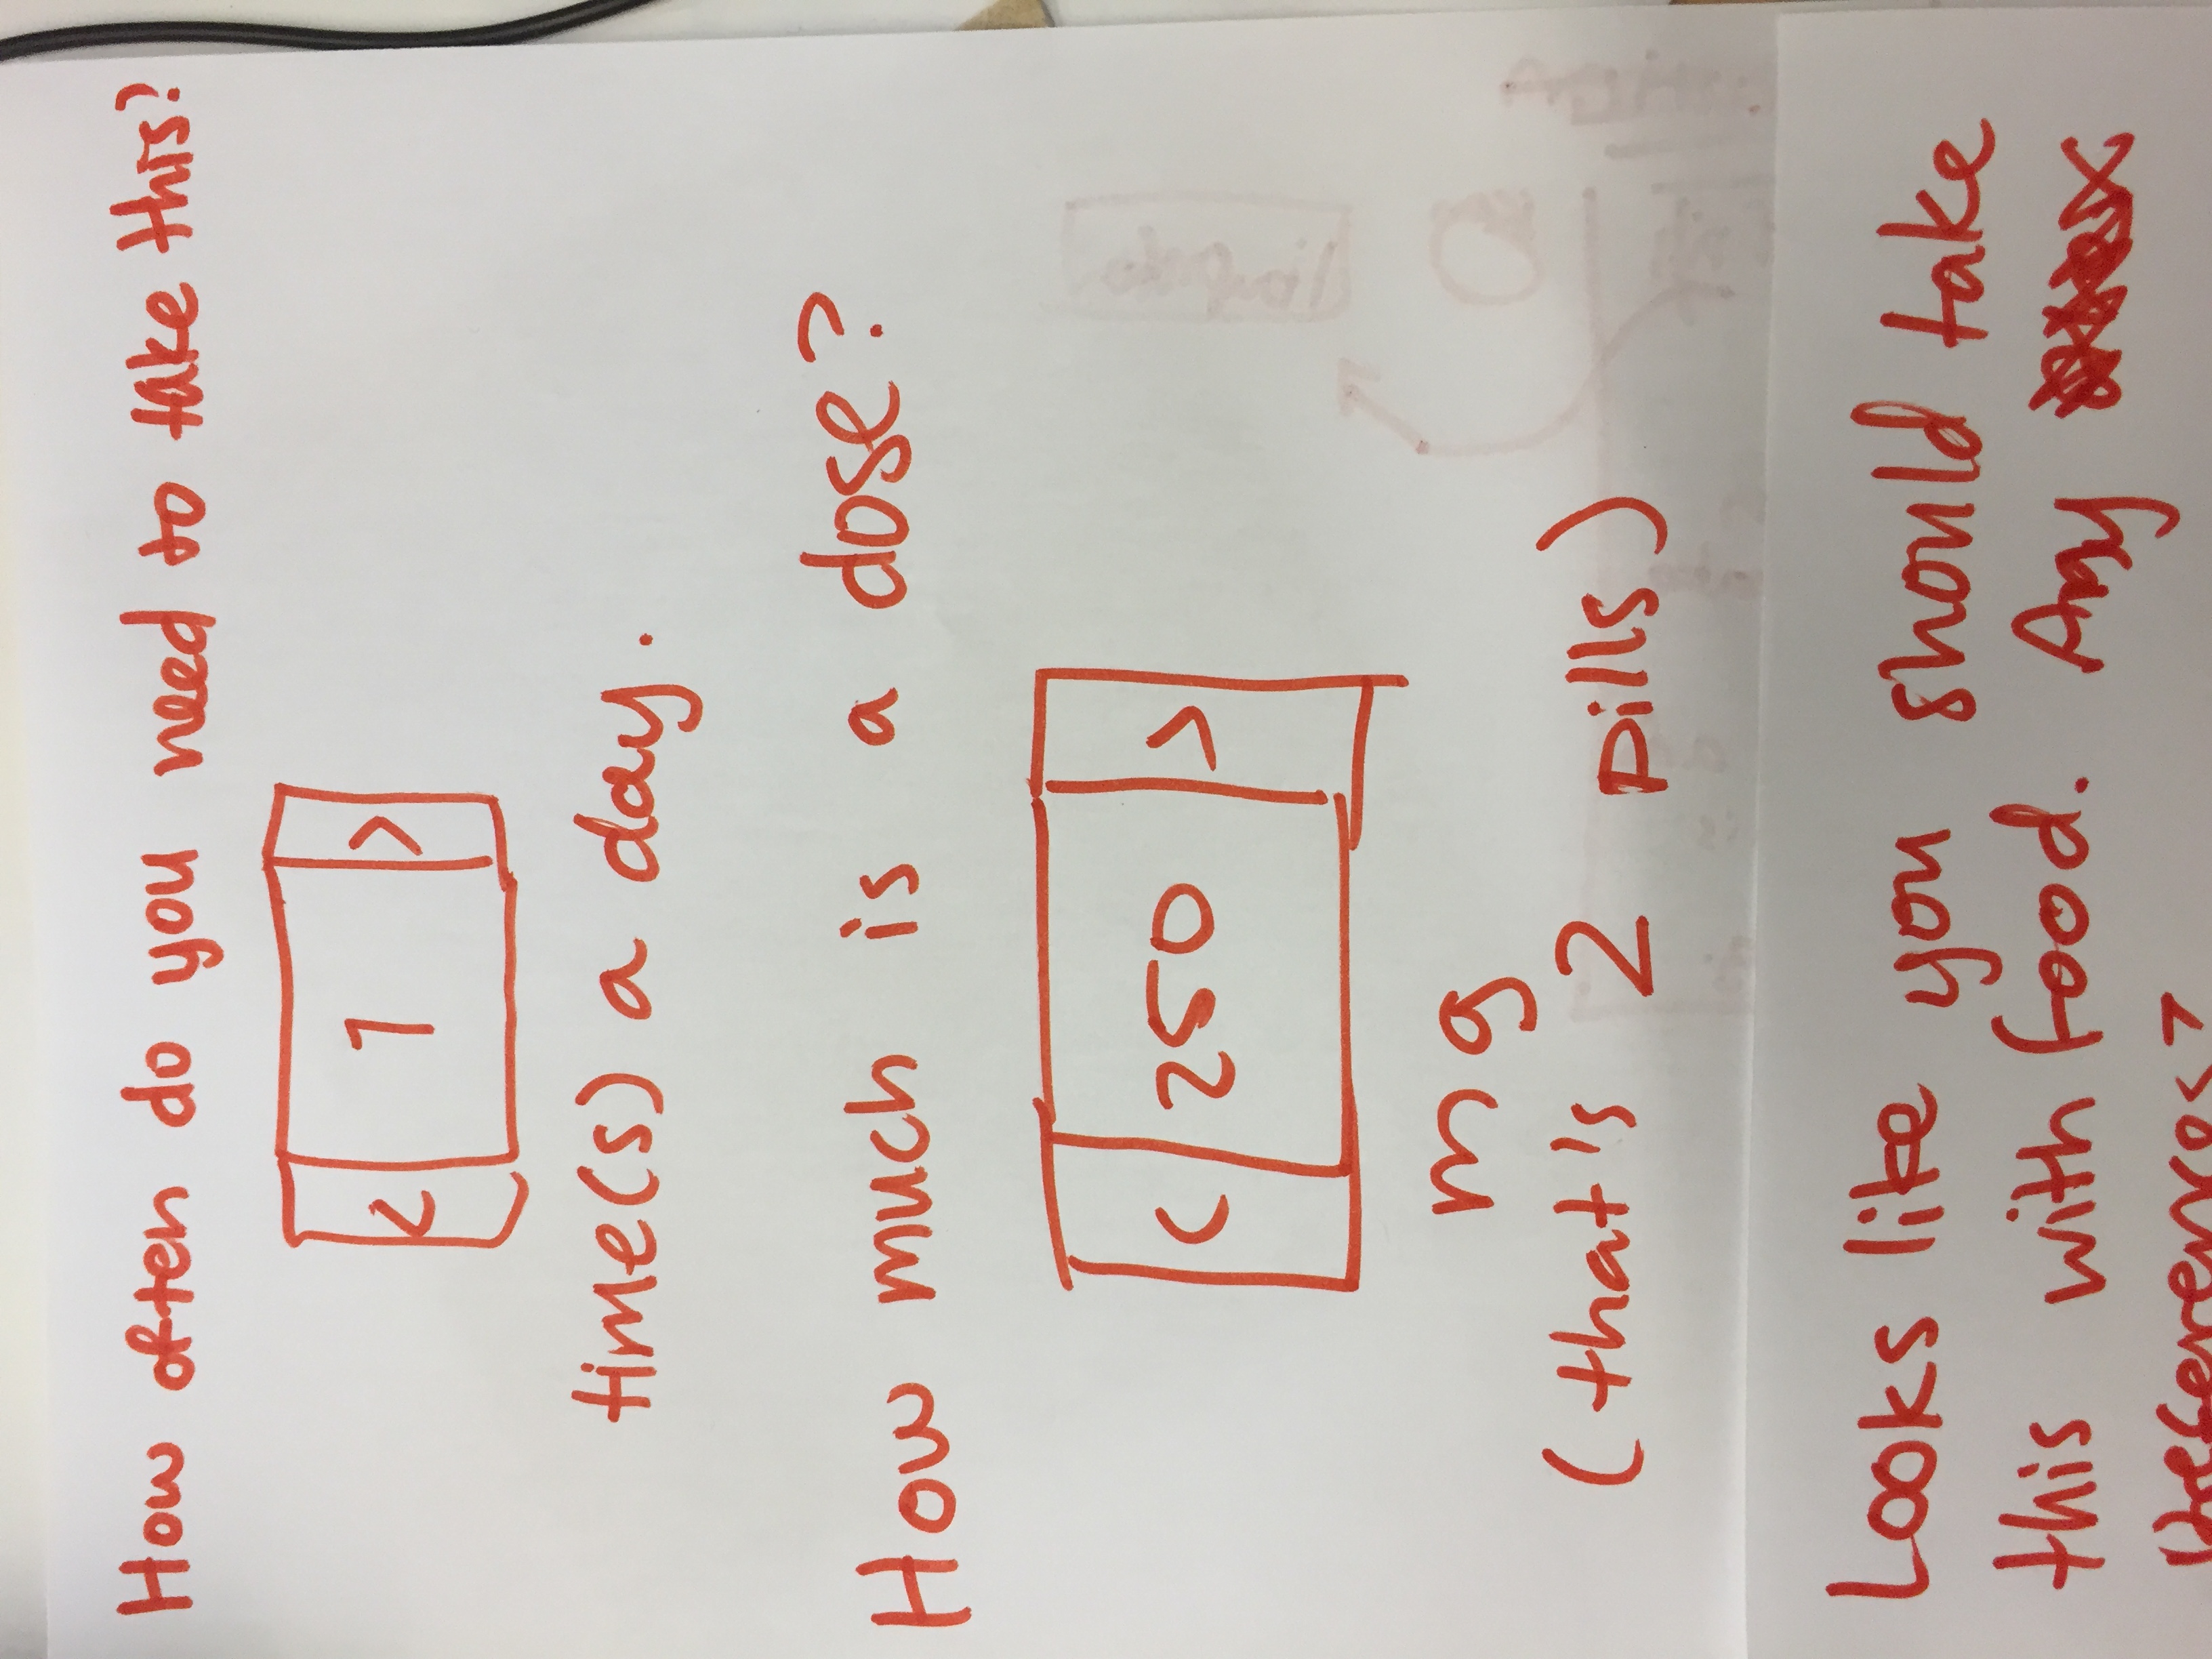 How often do you need to take this?
< 1 >
time(s) a day.
How much is a dose?
< 250 >
mg
(that's 2 pills)
Looks like you should take
this with food. Any
preferences?